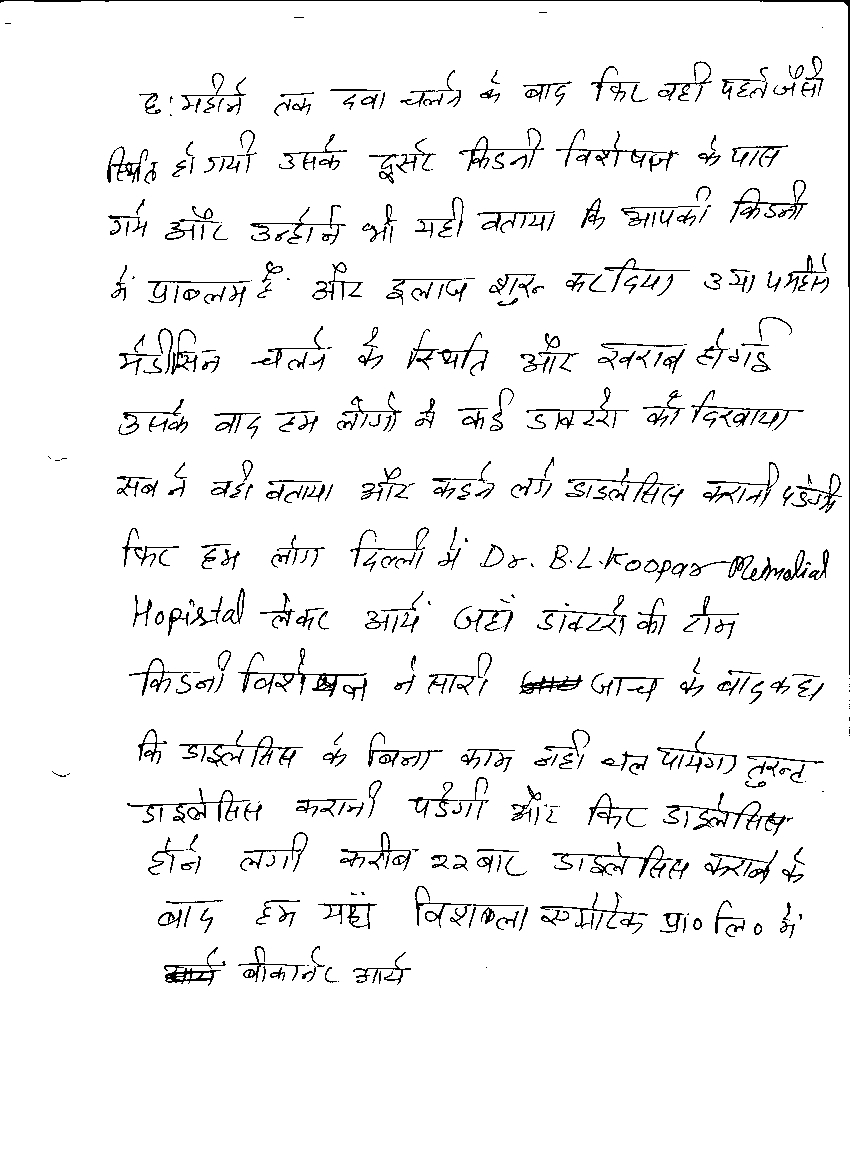 छः महीने तक दवा चलने के बाद फिर वही पहले जैसी
स्थिति हो गयी उसके दूसरे किडनी विशेषज्ञ के पास
गये और उन्होंने भी यही बताया कि आपकी किडनी
में प्राब्लम है और इलाज शुरू कर दिया 3 या 4 महीने
मेडीसिन चलने के स्थिति और खराब हो गई
उसके बाद हम लोगो ने कई डाक्टरो को दिखाया
सब ने वही बताया और कहने लगे डाइलेसिस करानी पडेगी
फिर हम लोग दिल्ली में Dr. B.L.Koopar Memolial
Hopistal लेकर आये जहाँ डांक्टरो की टीम
किडनी विशेषज्ञ ने सारी जाच के बाद कहा
कि डाइलेसिस के बिना काम नही चल पायेगा तुरन्त
डाइलेसिस करानी पडेगी और फिर डाइलेसिस
होने लगी करीब २२ बार डाइलेसिस कराने के
बाद हम यहाँ विशाला एग्रोटेक प्रा० लि० में
बीकानेर आये